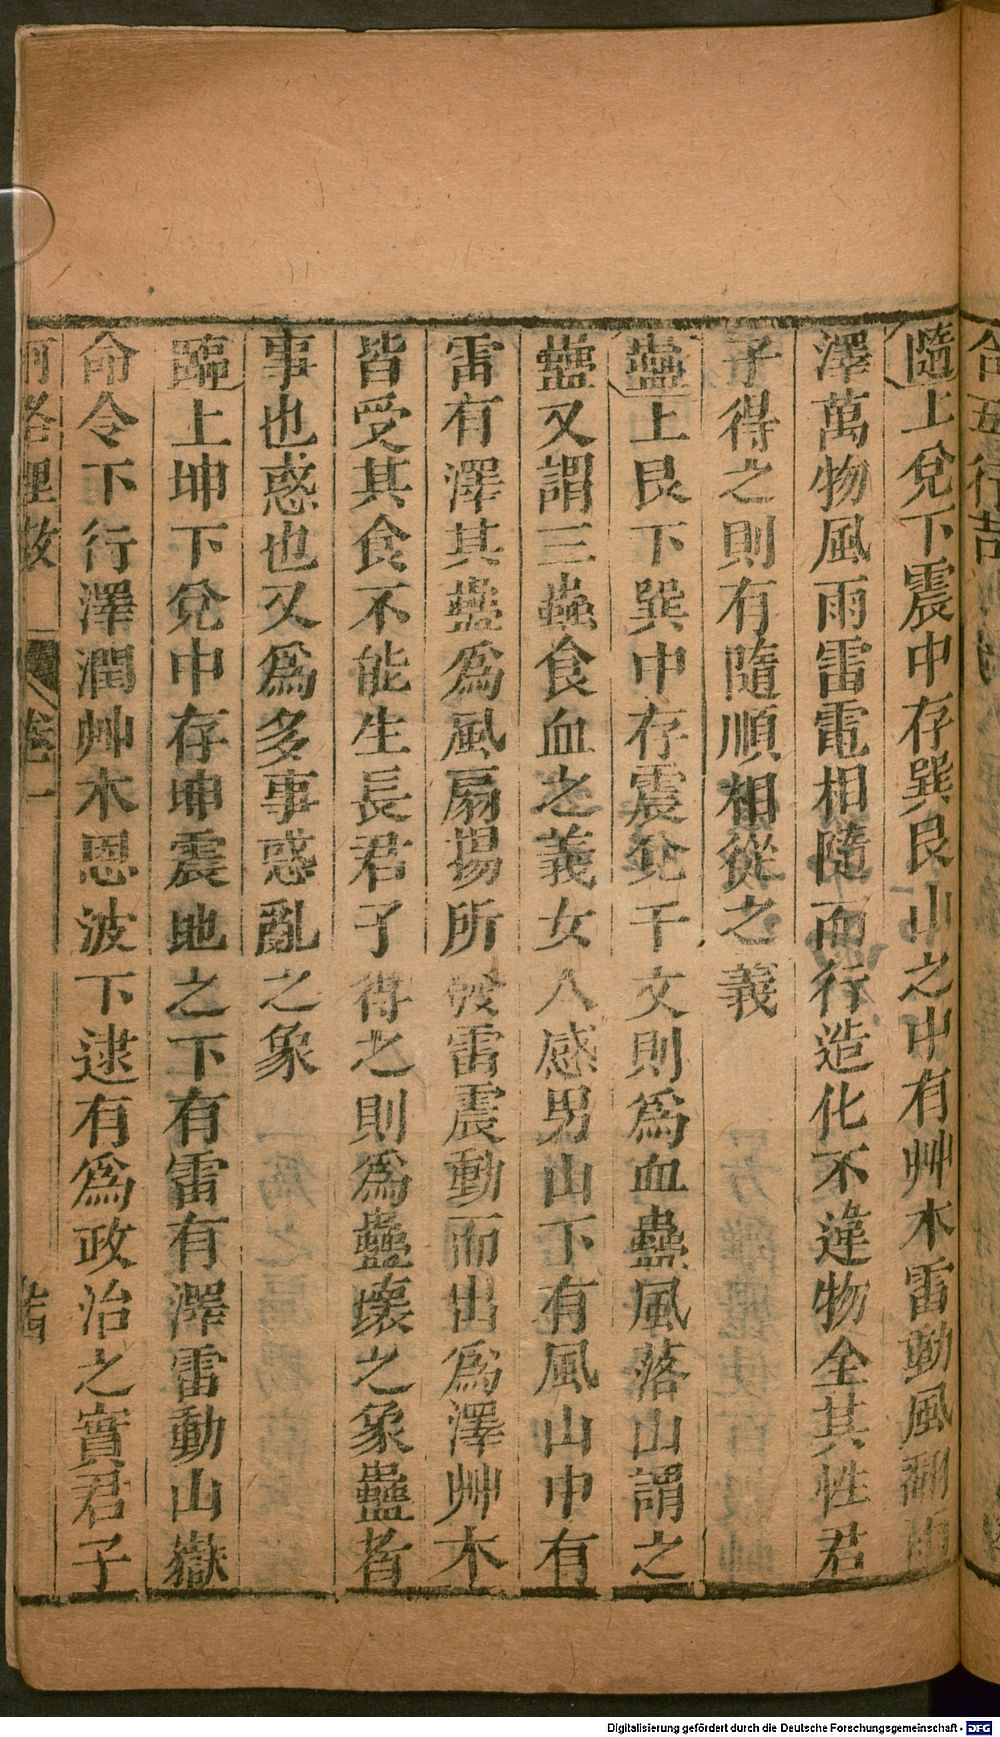 隨上兌下震中存巽艮山之中有艸木雷動風
澤萬物風雨雷電相隨而行造化不違物全其性君
子得之則有隨順相從之義
蠱上艮下巽中存震兌干文則爲血蠱風落山謂之
蠱又謂三蟲食血之義女人感男山下有風山中有
雷有澤其蠱爲風扇揚所發雷震動而出爲澤艸木
皆受其食不能生長君子得之則爲蠱壞之象蠱者
事也惑也又爲多事惑亂之象
臨上坤下兌中存坤震地之下有雷有澤雷動山嶽
命令下行澤潤艸木恩波下逮有爲政治之實君子
河洛理數
卷一
合五行
Digitalisierung gefördert durch die Deutsche Forschungsgemeinschaft - DFG